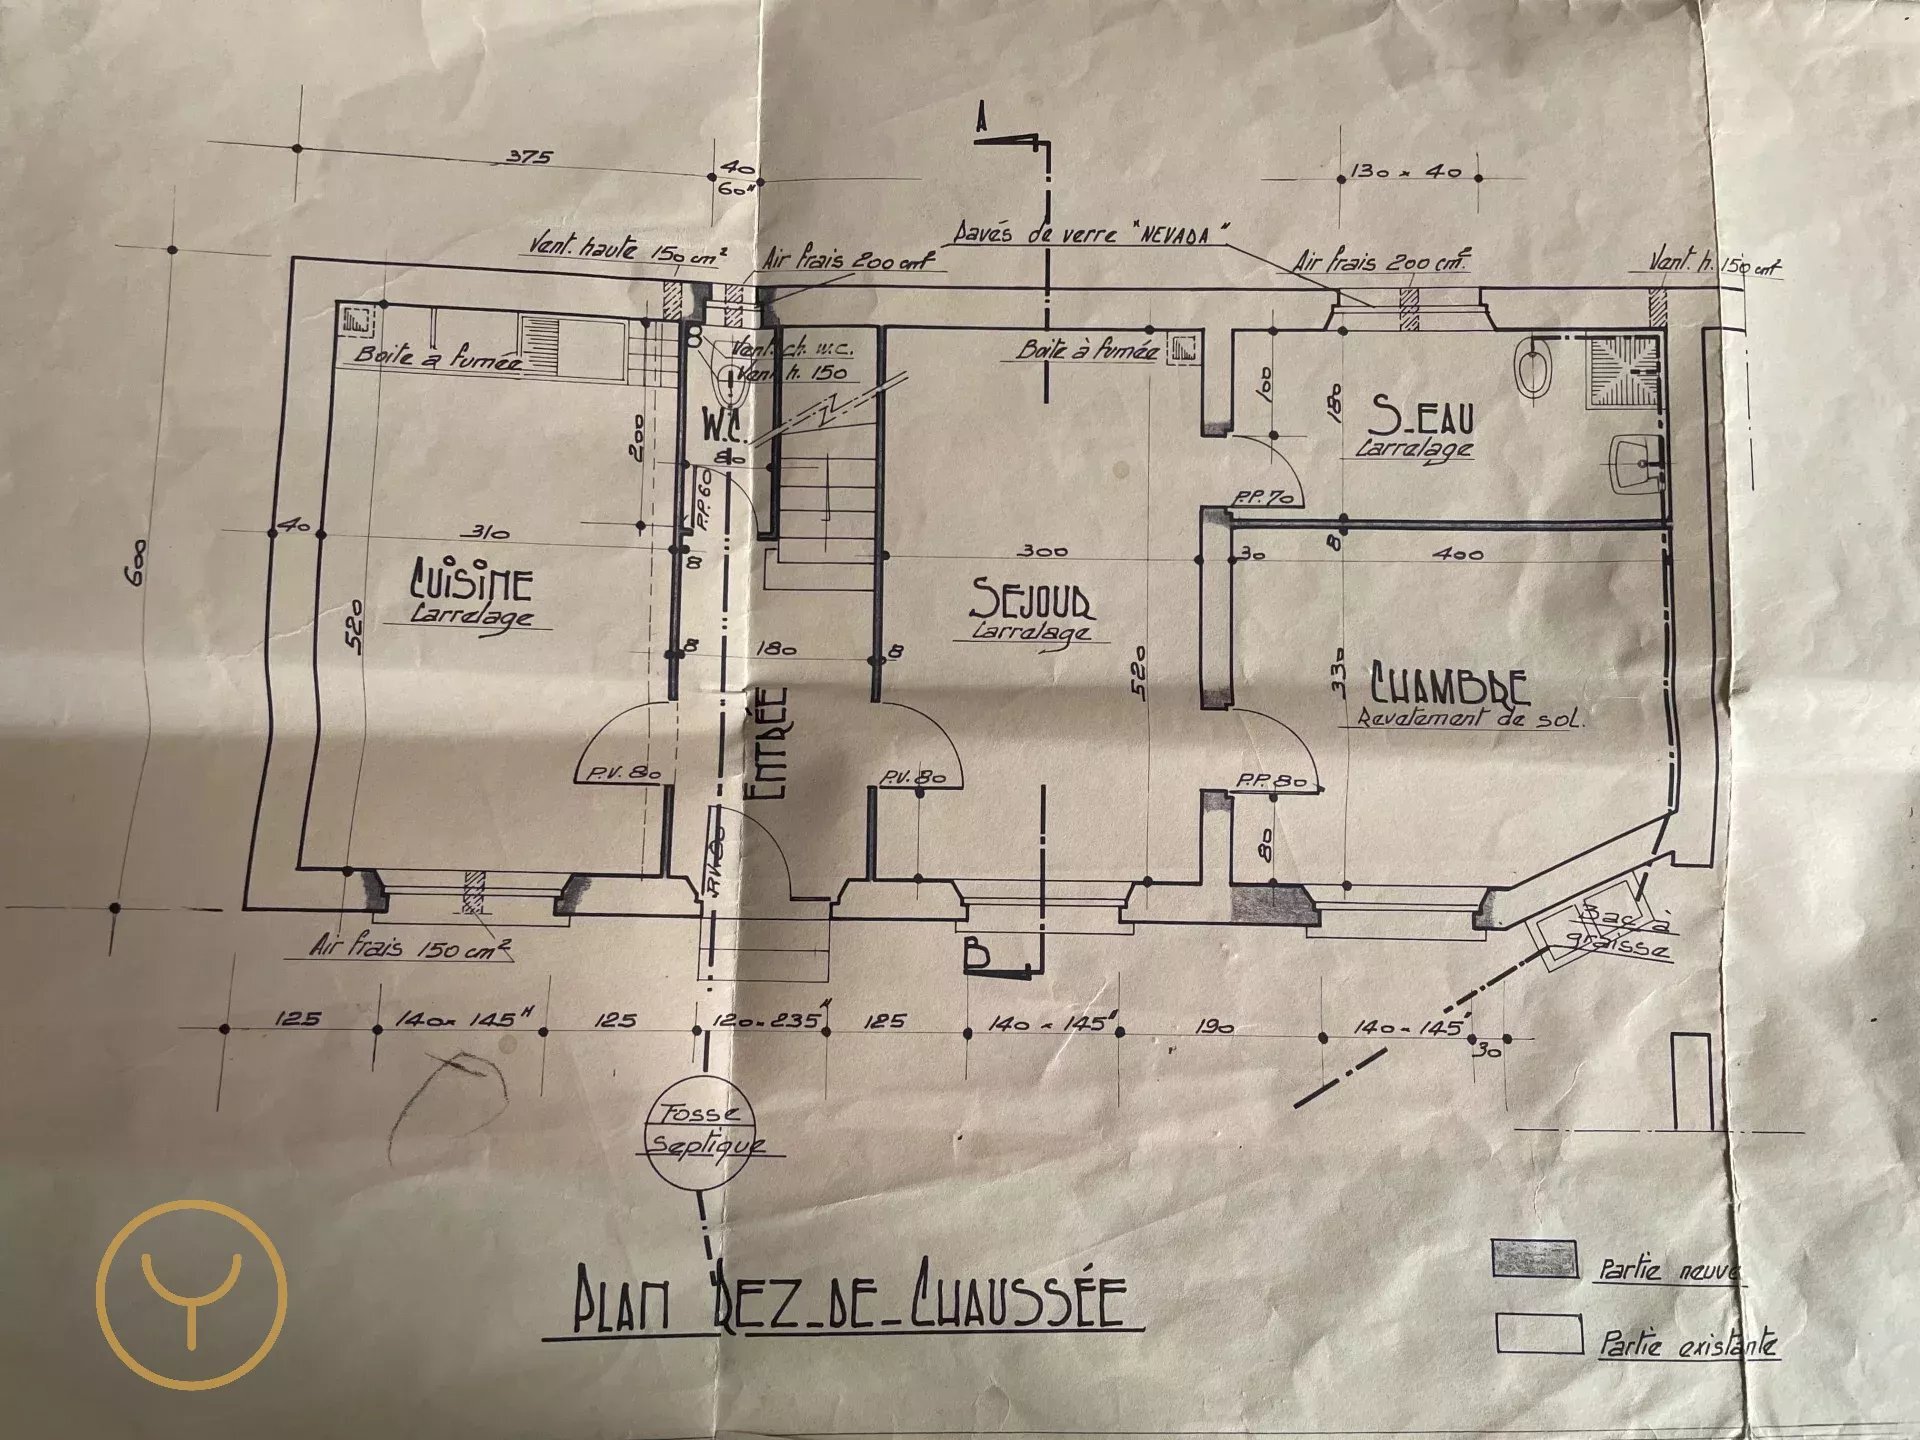 A
375
40
60H
130 x 40
Pavés de verre "NEVADA"
Vent. haute 150 cm²
Air frais 200 cm²
Air frais 200 cm²
Vent. h. 150 cm²
Boite à fumée
Vent. ch. w.c.
Vent. h. 150
Boite à fumée
100
180
200
W.C.
S_EAU
Carrelage
80
P.P. 60
P.P. 70
40
310
8
300
30
8
400
600
CUISINE
Carrelage
SEJOUR
Carrelage
520
8
180
8
520
330
CHAMBRE
Revetement de sol.
ENTRÉE
P.V. 80
P.V. 80
P.P. 80
80
Bac à
graisse
Air frais 150 cm²
B
125
140 x 145H
125
120 x 235H
125
140 x 145H
190
140 x 145H
30
Fosse
Septique
PLAN REZ_DE_CHAUSSÉE
Partie neuve
Partie existante